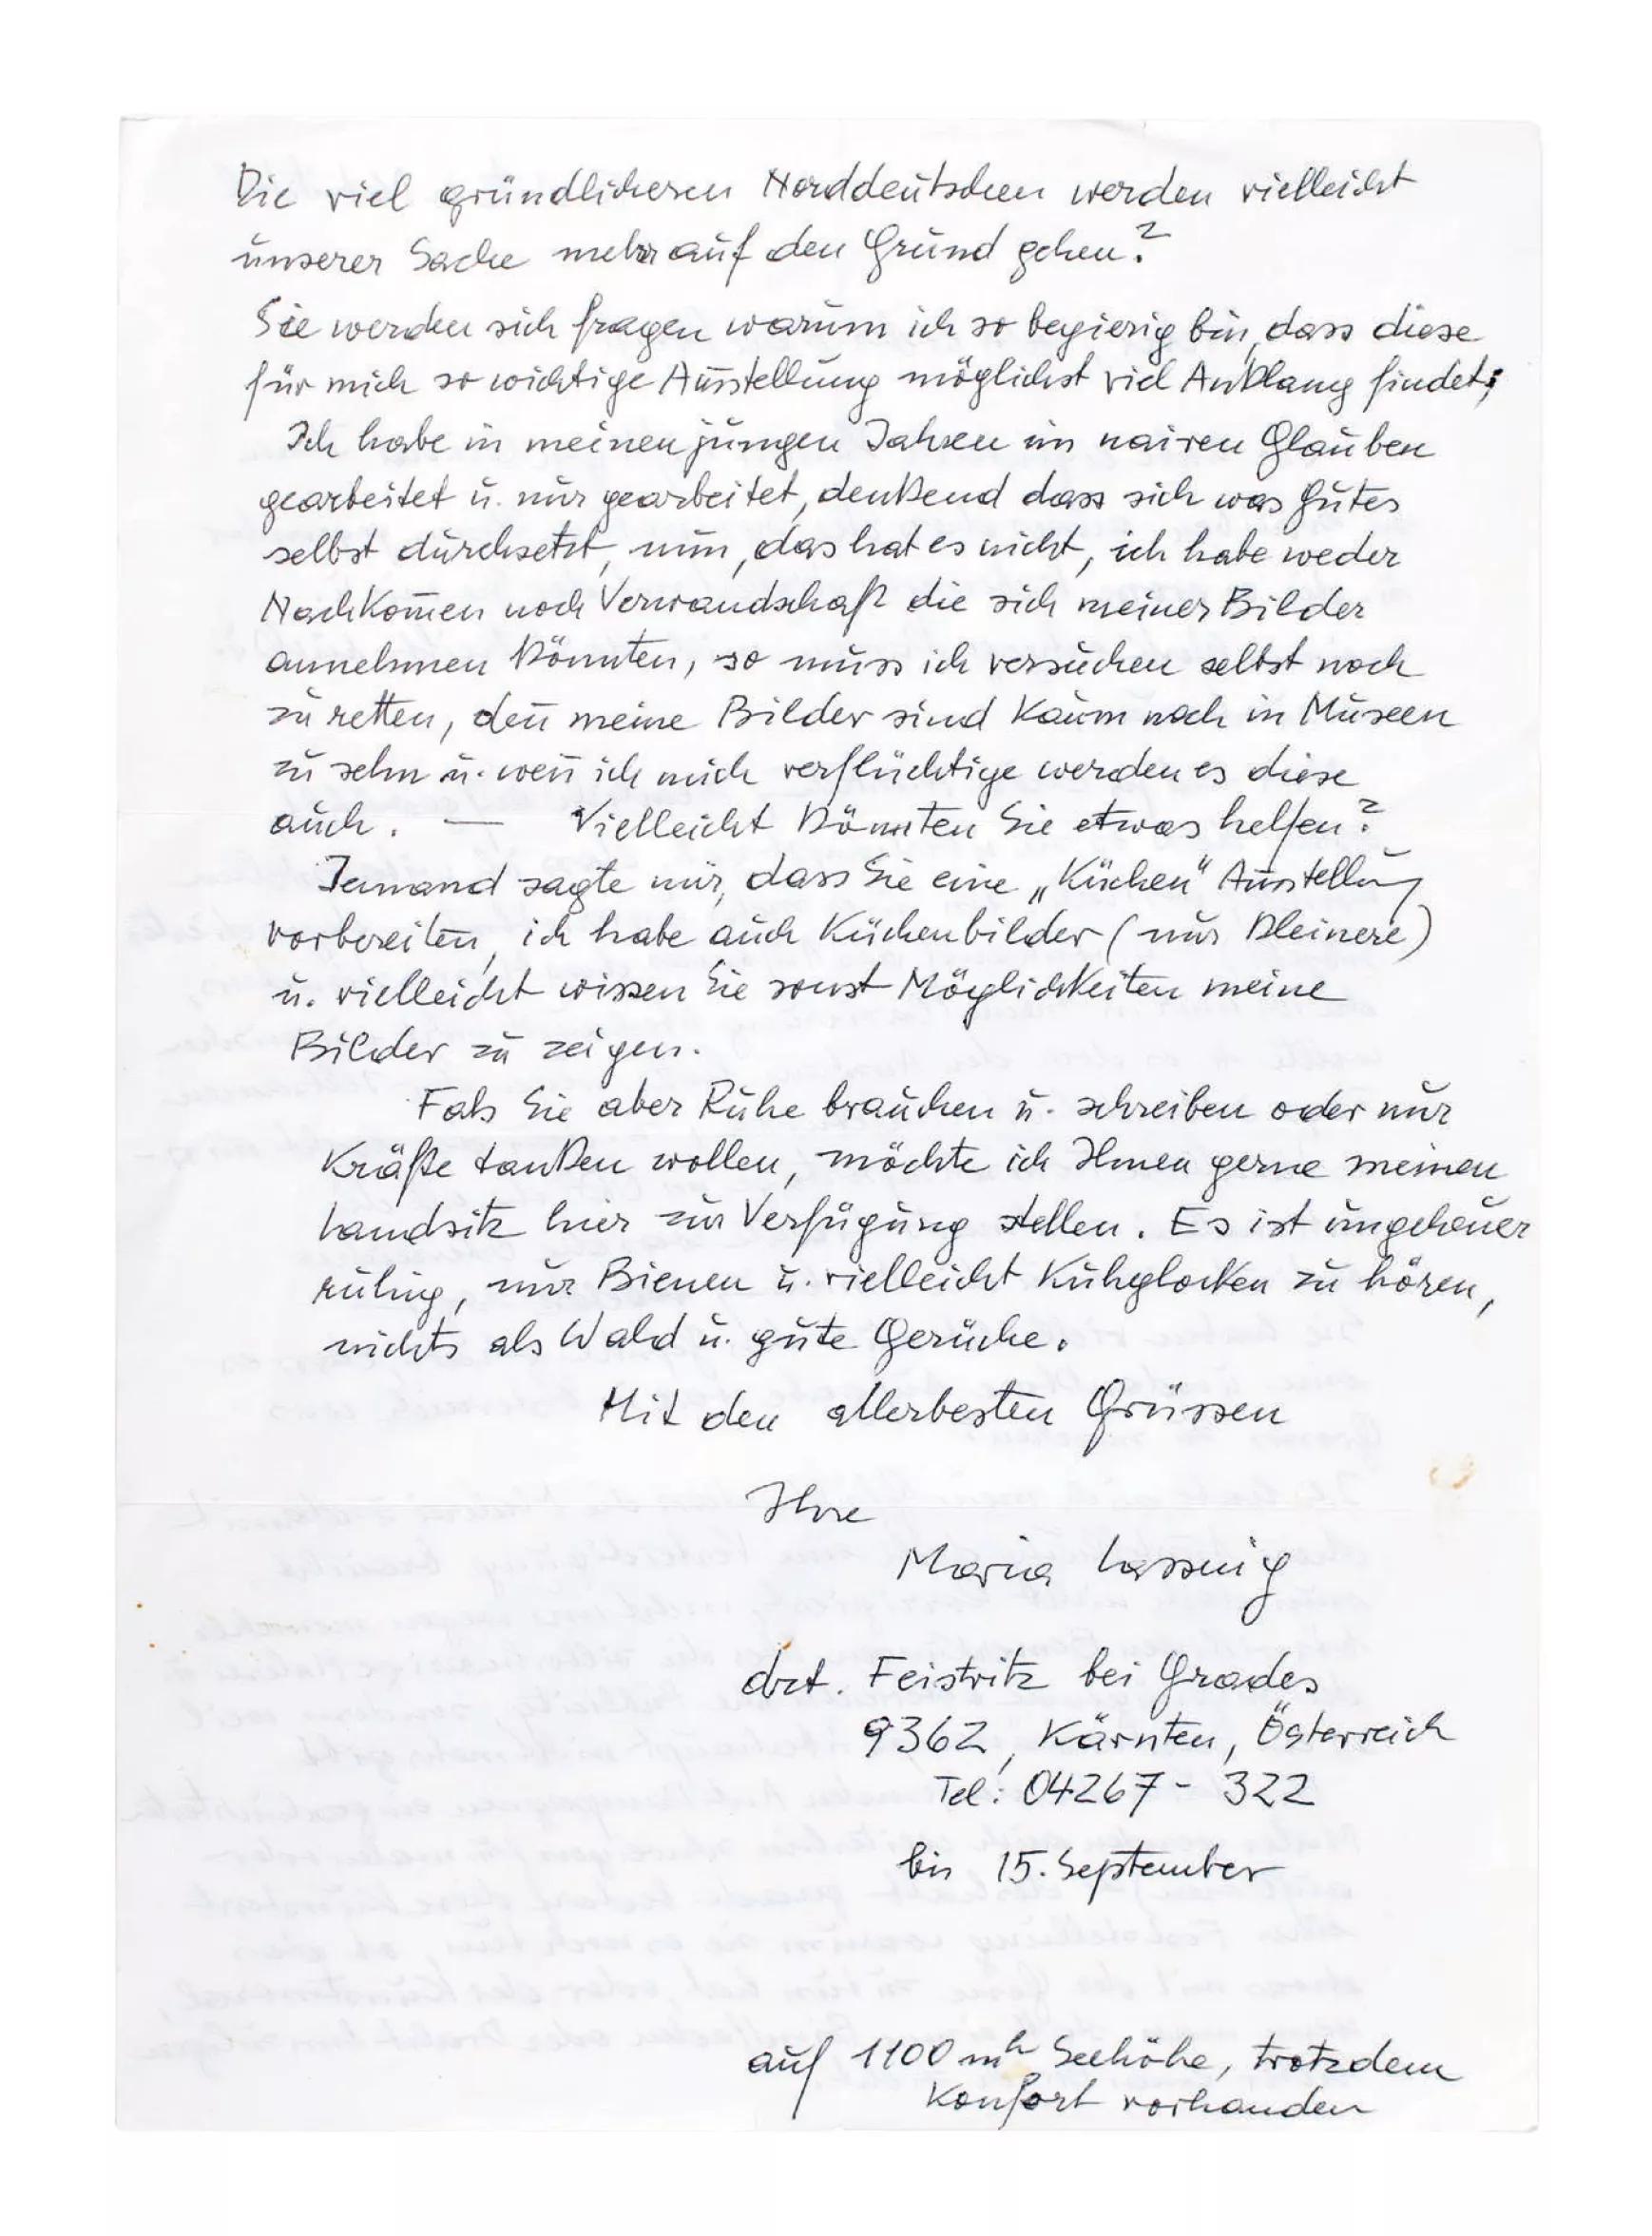 Die viel gründlicheren Norddeutschen werden vielleicht
unserer Sache mehr auf den Grund gehen?
Sie werden sich fragen warum ich so begierig bin, dass diese
für mich so wichtige Ausstellung möglichst viel Anklang findet;
Ich habe in meinen jungen Jahren im naiven Glauben
gearbeitet u. nur gearbeitet, denkend dass sich was Gutes
selbst durchsetzt, nun, das hat es nicht, ich habe weder
Nachkom̅en noch Verwandschaft die sich meiner Bilder
annehmen könnten, so muss ich versuchen selbst noch
zu retten, den̅ meine Bilder sind kaum noch in Museen
zu sehn u. wen̅ ich mich verflüchtige werden es diese
auch. — Vielleicht könnten Sie etwas helfen?
Jemand sagte mir, dass Sie eine „Küchen" Ausstellung
vorbereiten, ich habe auch Küchenbilder (nur kleinere)
u. vielleicht wissen Sie sonst Möglichkeiten meine
Bilder zu zeigen.
Fals Sie aber Ruhe brauchen u. schreiben oder nur
Kräfte tanken wollen, möchte ich Ihnen gerne meinen
Landsitz hier zur Verfügung stellen. Es ist ungeheuer
ruhig, nur Bienen u. vielleicht Kuhglocken zu hören,
nichts als Wald u. gute Gerüche.
Mit den allerbesten Grüssen
Ihre
Maria Lassnig
dzt. Feistritz bei Grades
9362, Kärnten, Österreich
Tel: 04267 - 322
bis 15. September
auf 1100 mh Seehöhe, trotzdem
Konfort vorhanden